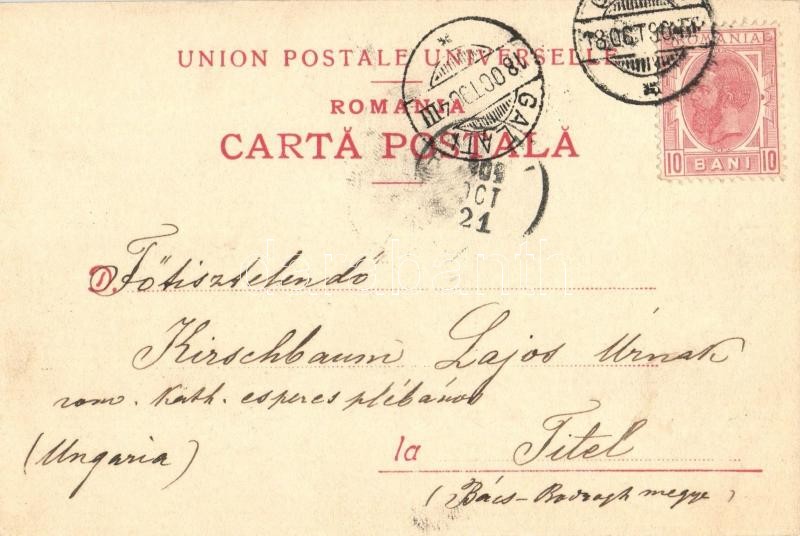 UNION POSTALE UNIVERSELLE
ROMANIA
CARTĂ POSTALĂ
18 OCT 904
GALATI
OCT
21
18 OCT 90
ROMANIA
10 BANI 10
D. Főtisztelendő
Kirschbaum Lajos Úrnak
rom. kath. esperes plébános
(Ungaria)
la Titel
(Bács-Bodrogh megye)
darabanth